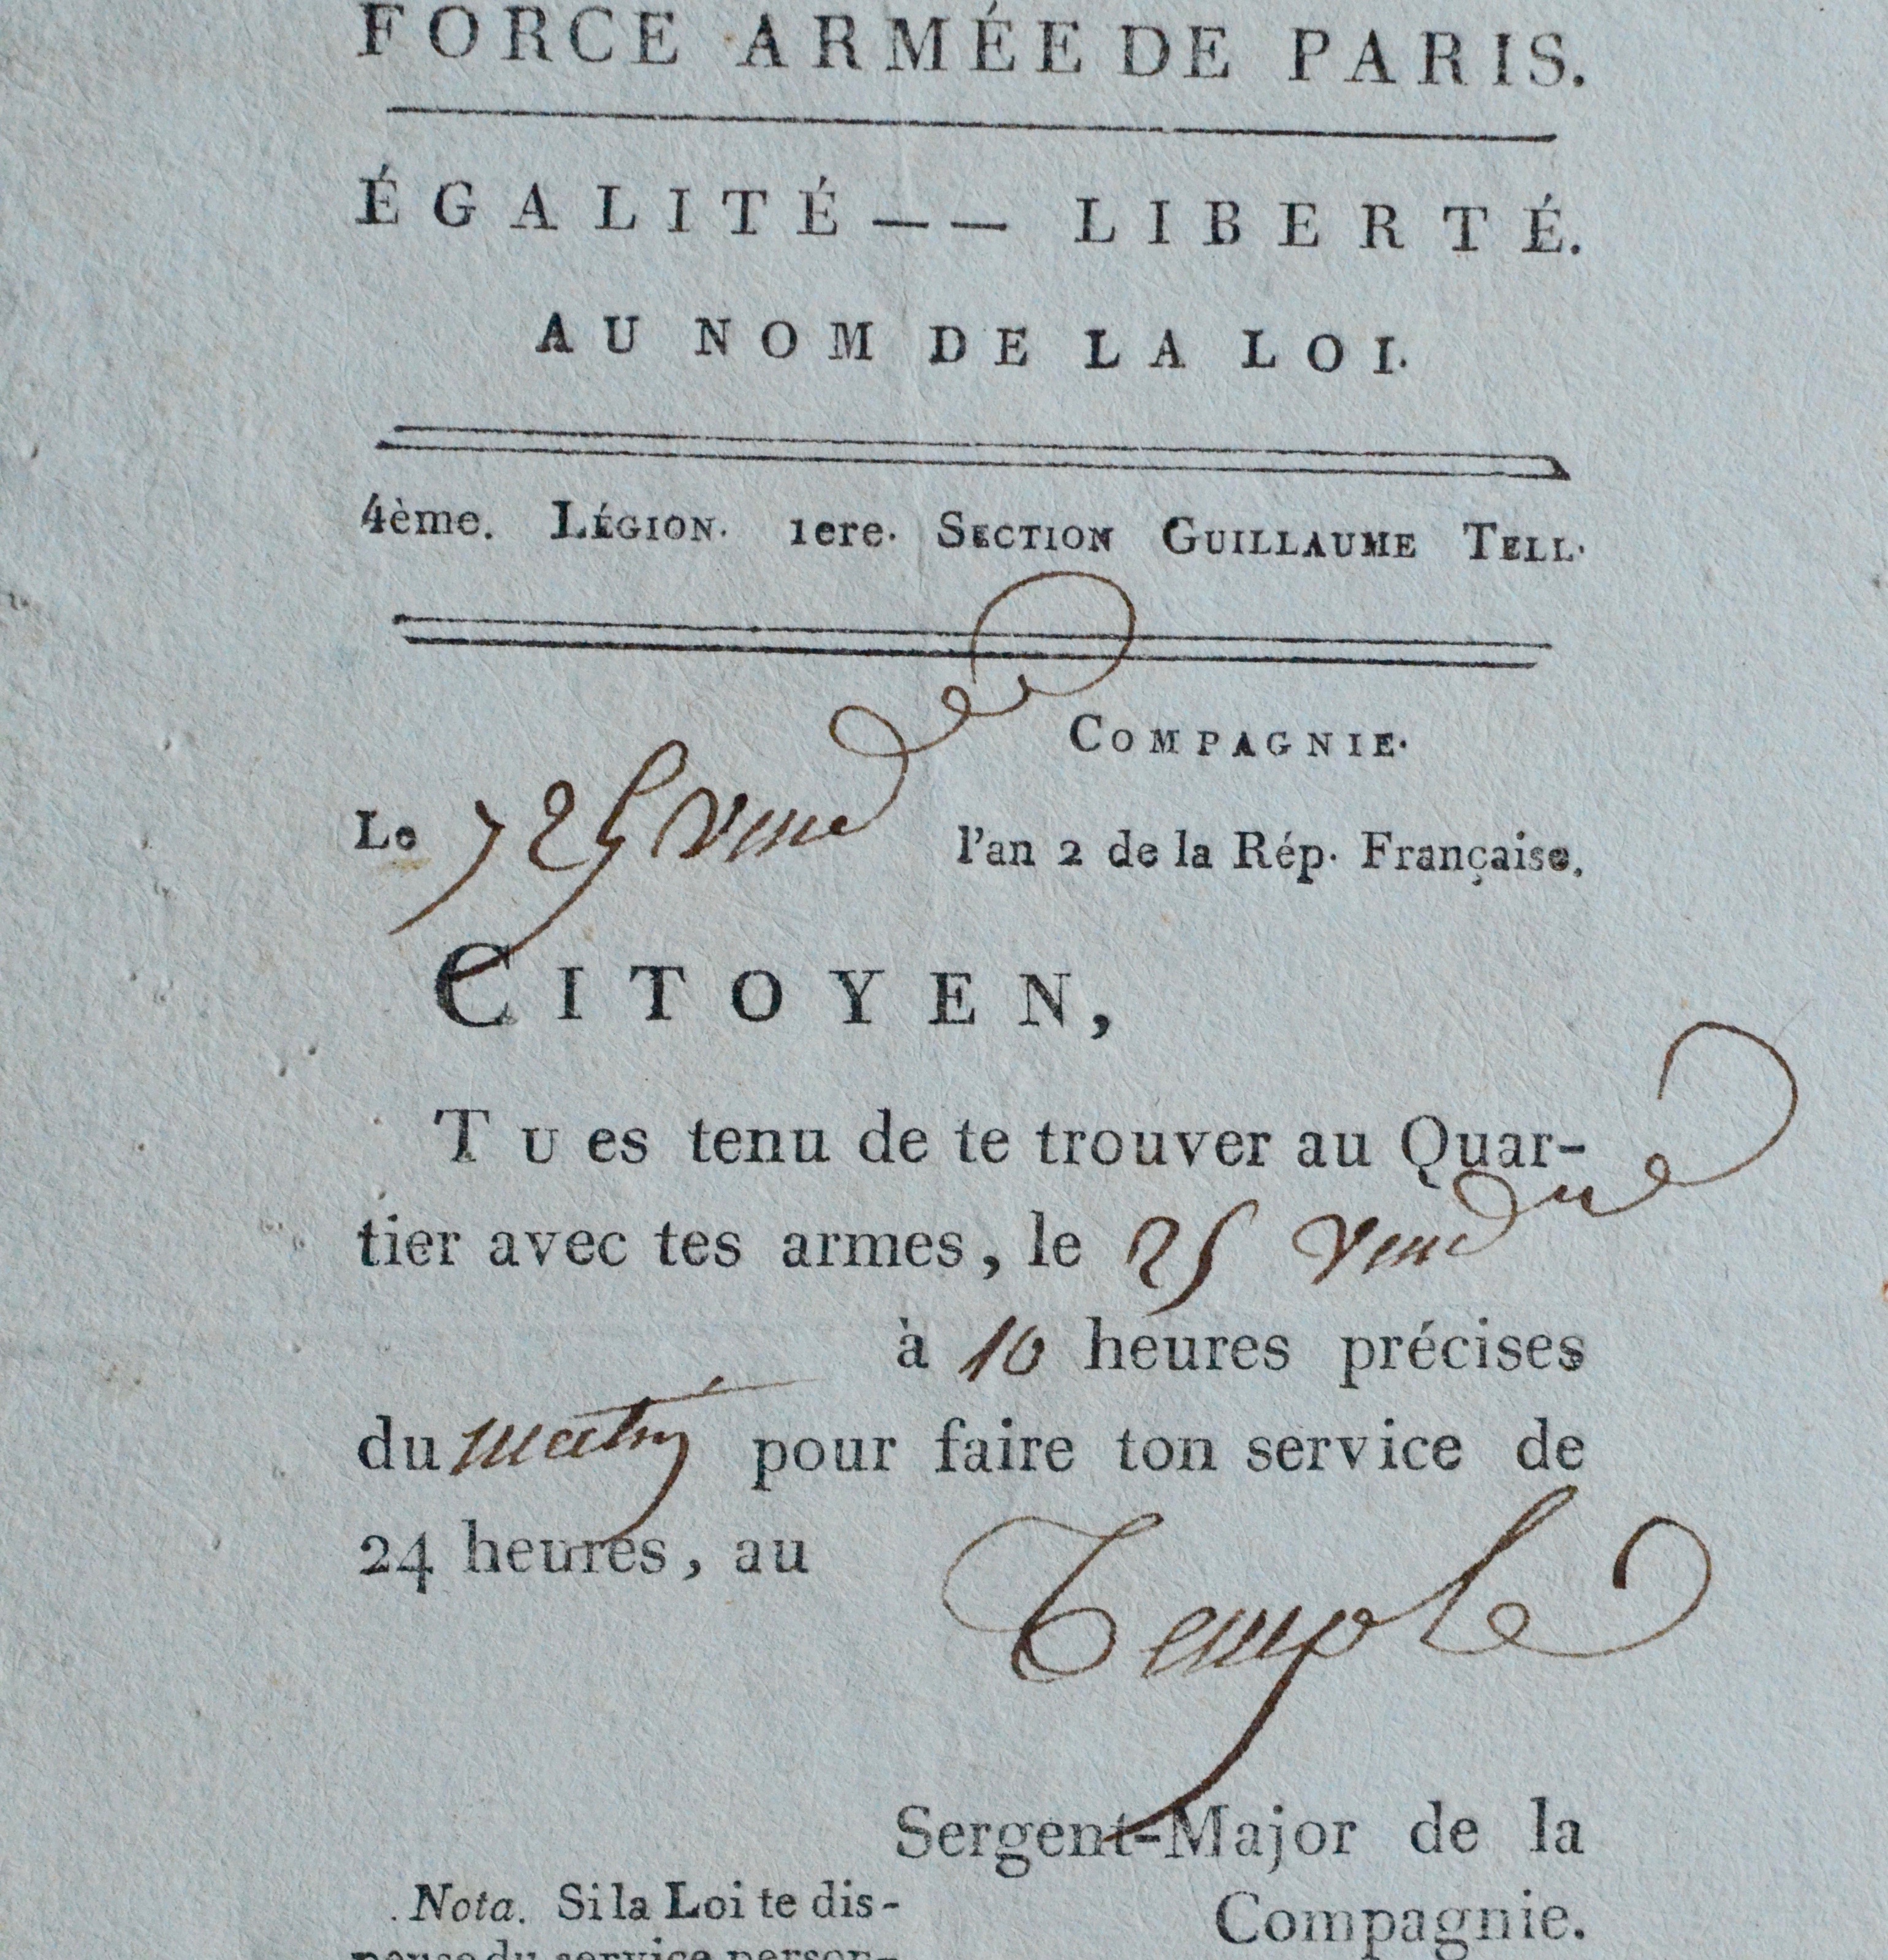 FORCE ARMÉE DE PARIS.
ÉGALITÉ —— LIBERTÉ.
AU NOM DE LA LOI.
4ème. LÉGION. 1ere. SECTION GUILLAUME TELL.
COMPAGNIE.
Le 25 vend l'an 2 de la Rép. Française.
CITOYEN,
TU es tenu de te trouver au Quar-
tier avec tes armes, le 25 vend
à 10 heures précises
du matin pour faire ton service de
24 heures, au Temple
Sergent-Major de la
Compagnie.
Nota. Si la Loi te dis-
pense du service person-